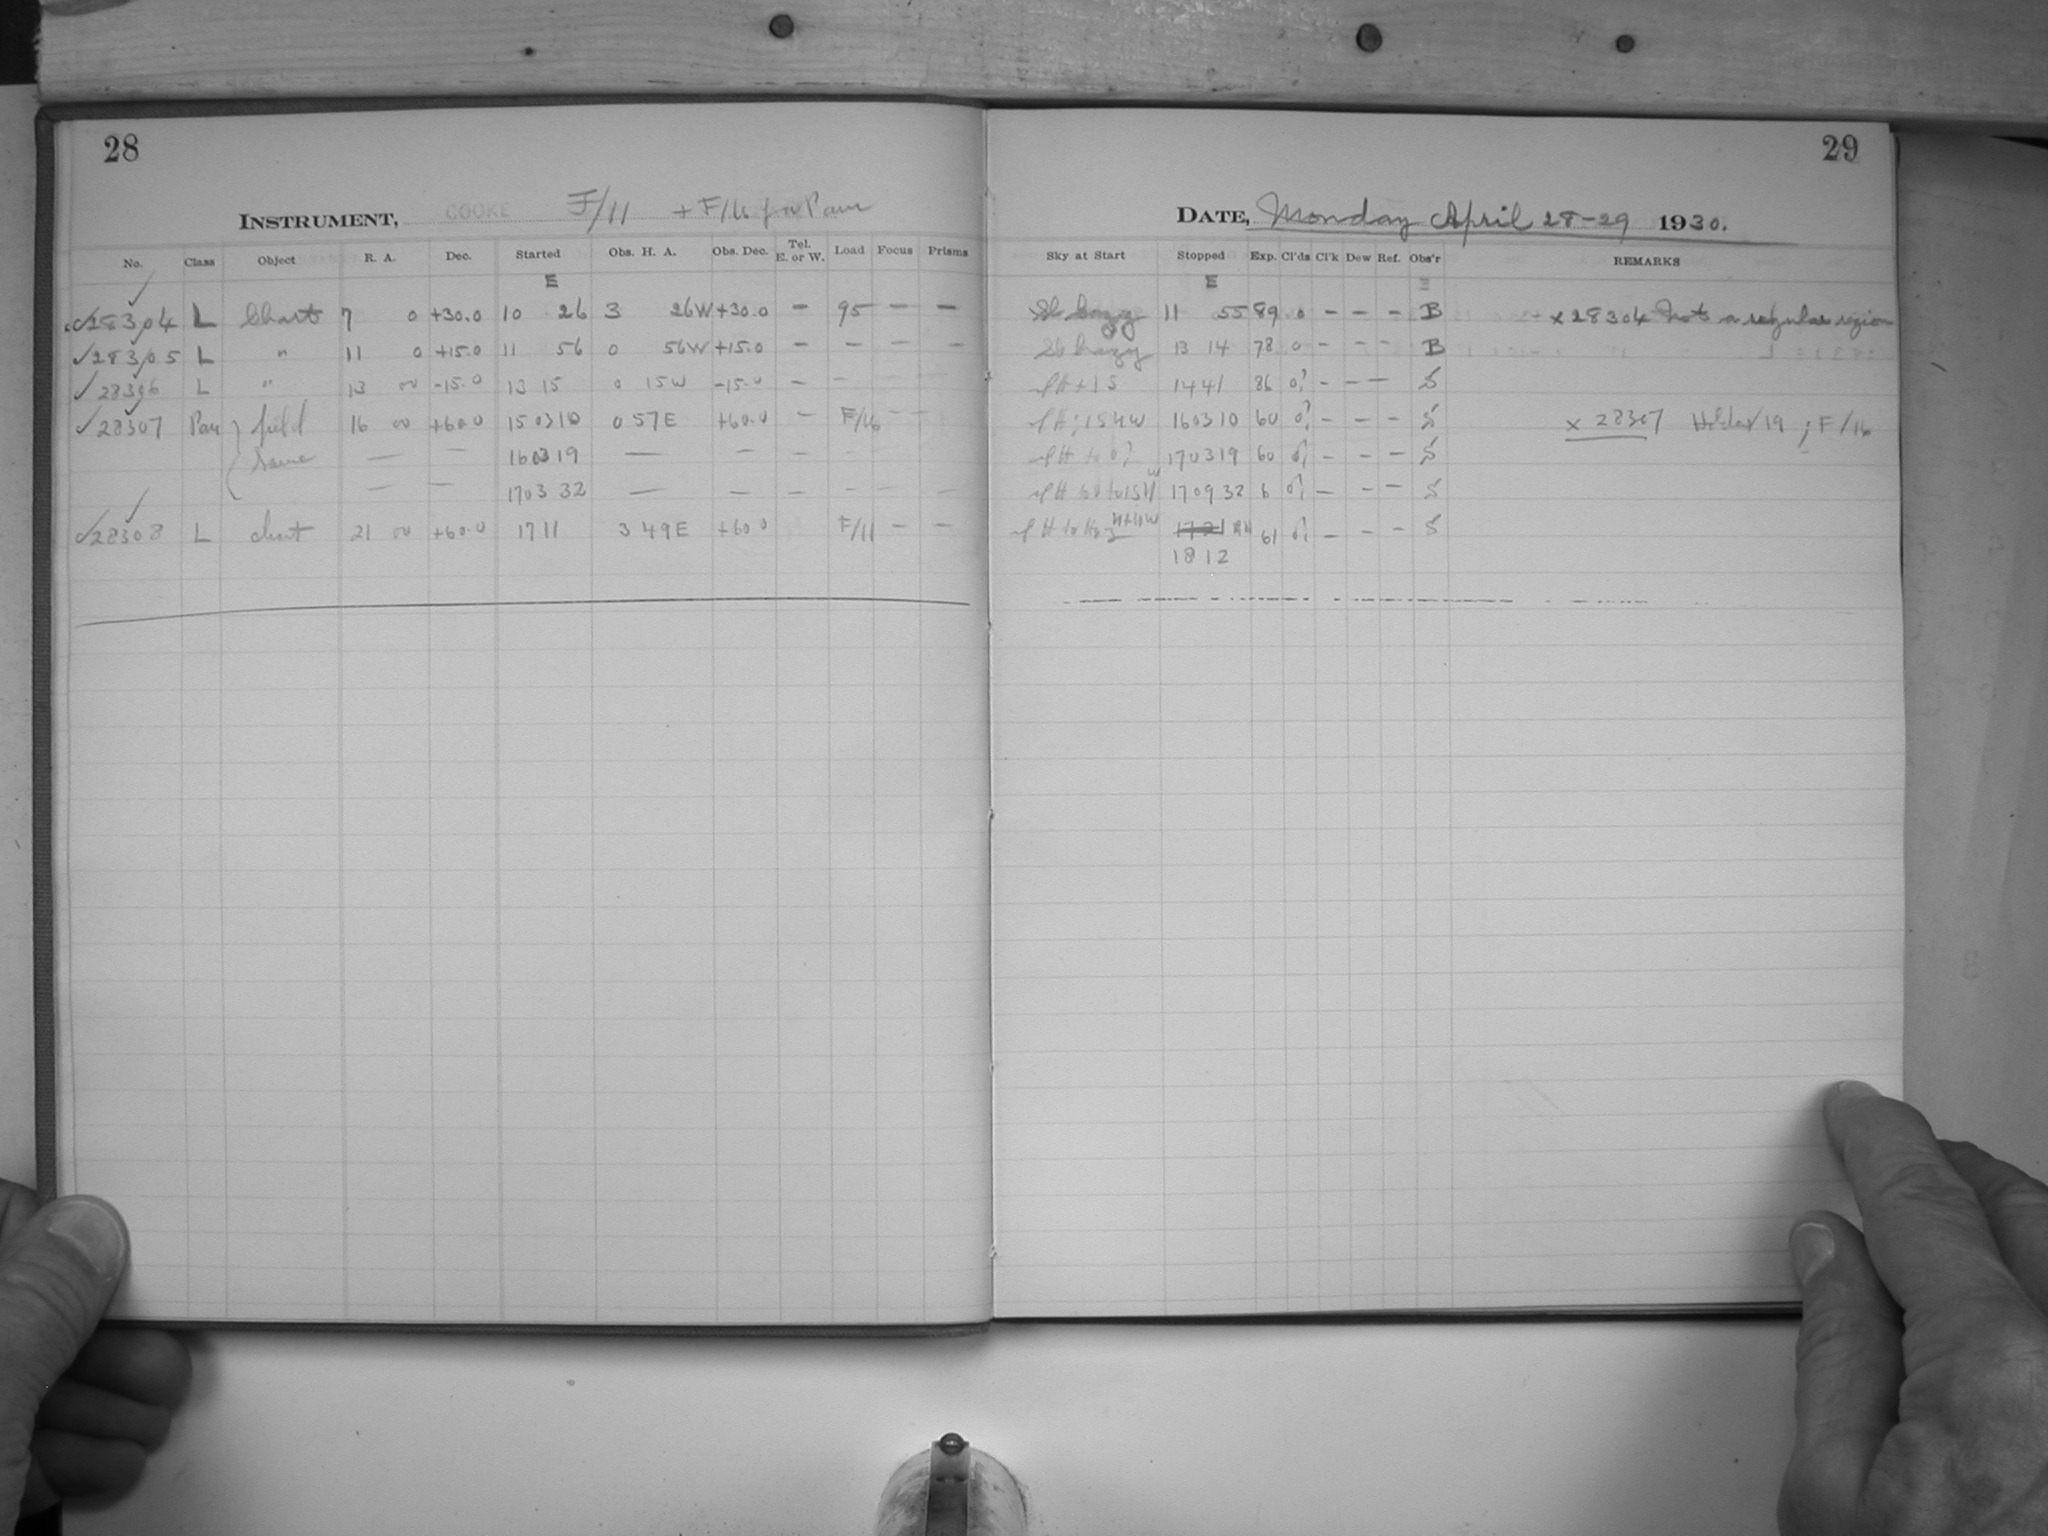 28
INSTRUMENT, COOKE F/11 + F/16 for Pan
No. Class Object R. A. Dec. Started Obs. H. A. Obs. Dec. Tel. E. or W. Load Focus Prisms
E
28304 L Chart 7 0 +30.0 10 26 3 26W +30.0 – 95 – –
28305 L " 11 0 +15.0 11 56 0 56W +15.0 – – – –
28306 L " 13 00 -15.0 13 15 0 15W -15.0 – – – –
28307 Pan field 16 00 +60.0 15 03 10 0 57E +60.0 – F/16 – –
Same — — 16 03 19 — – – – –
— — 17 03 32 — – – – – –
28308 L chart 21 00 +60.0 17 11 3 49E +60.0 F/11 – –
29
DATE, Monday April 28-29 1930.
Sky at Start Stopped Exp. Cl'ds Cl'k Dew Ref. Obs'r REMARKS
E
Sl hazy 11 55 89 0 – – – B x 28304 Not a regular region
Sl hazy 13 14 78 0 – – – B
14 41 86 0? – – – S
16 03 10 60 0? – – – S x 28307 Holder 19 ; F/16
17 03 19 60 – – – S
17 09 32 6 – – – S
61 – – – S
18 12